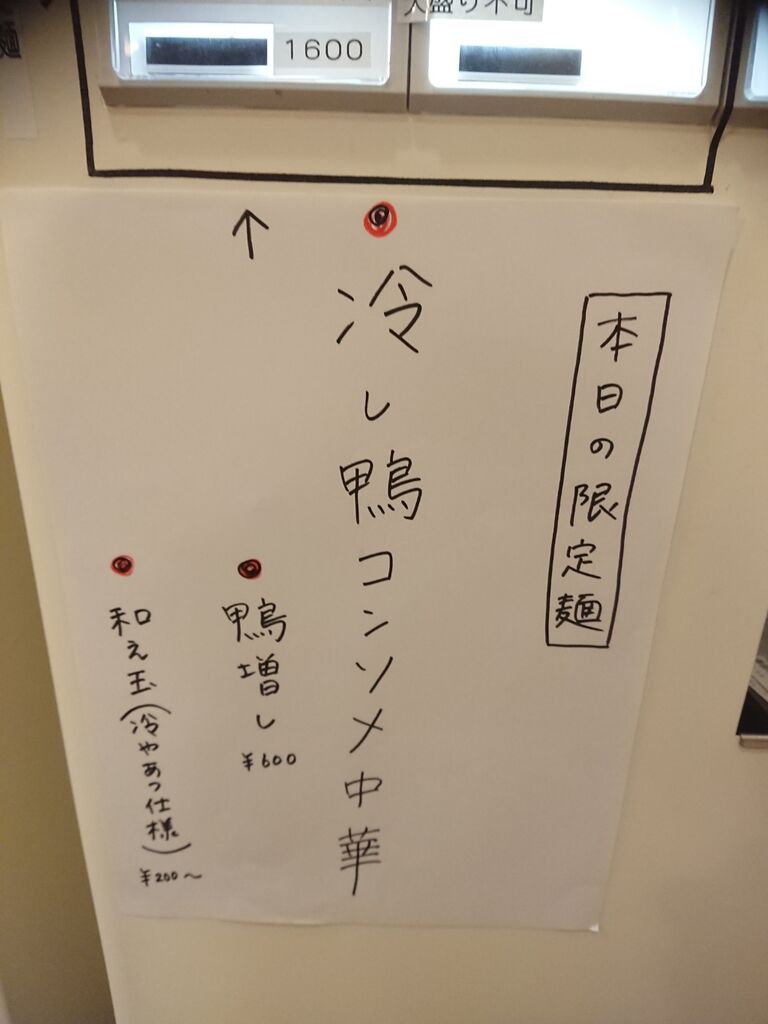 大盛り不可
1600
本日の限定麺
冷し鴨コンソメ中華
鴨増し
¥600
和え玉
(冷やあつ仕様)
¥200〜
↑
麺